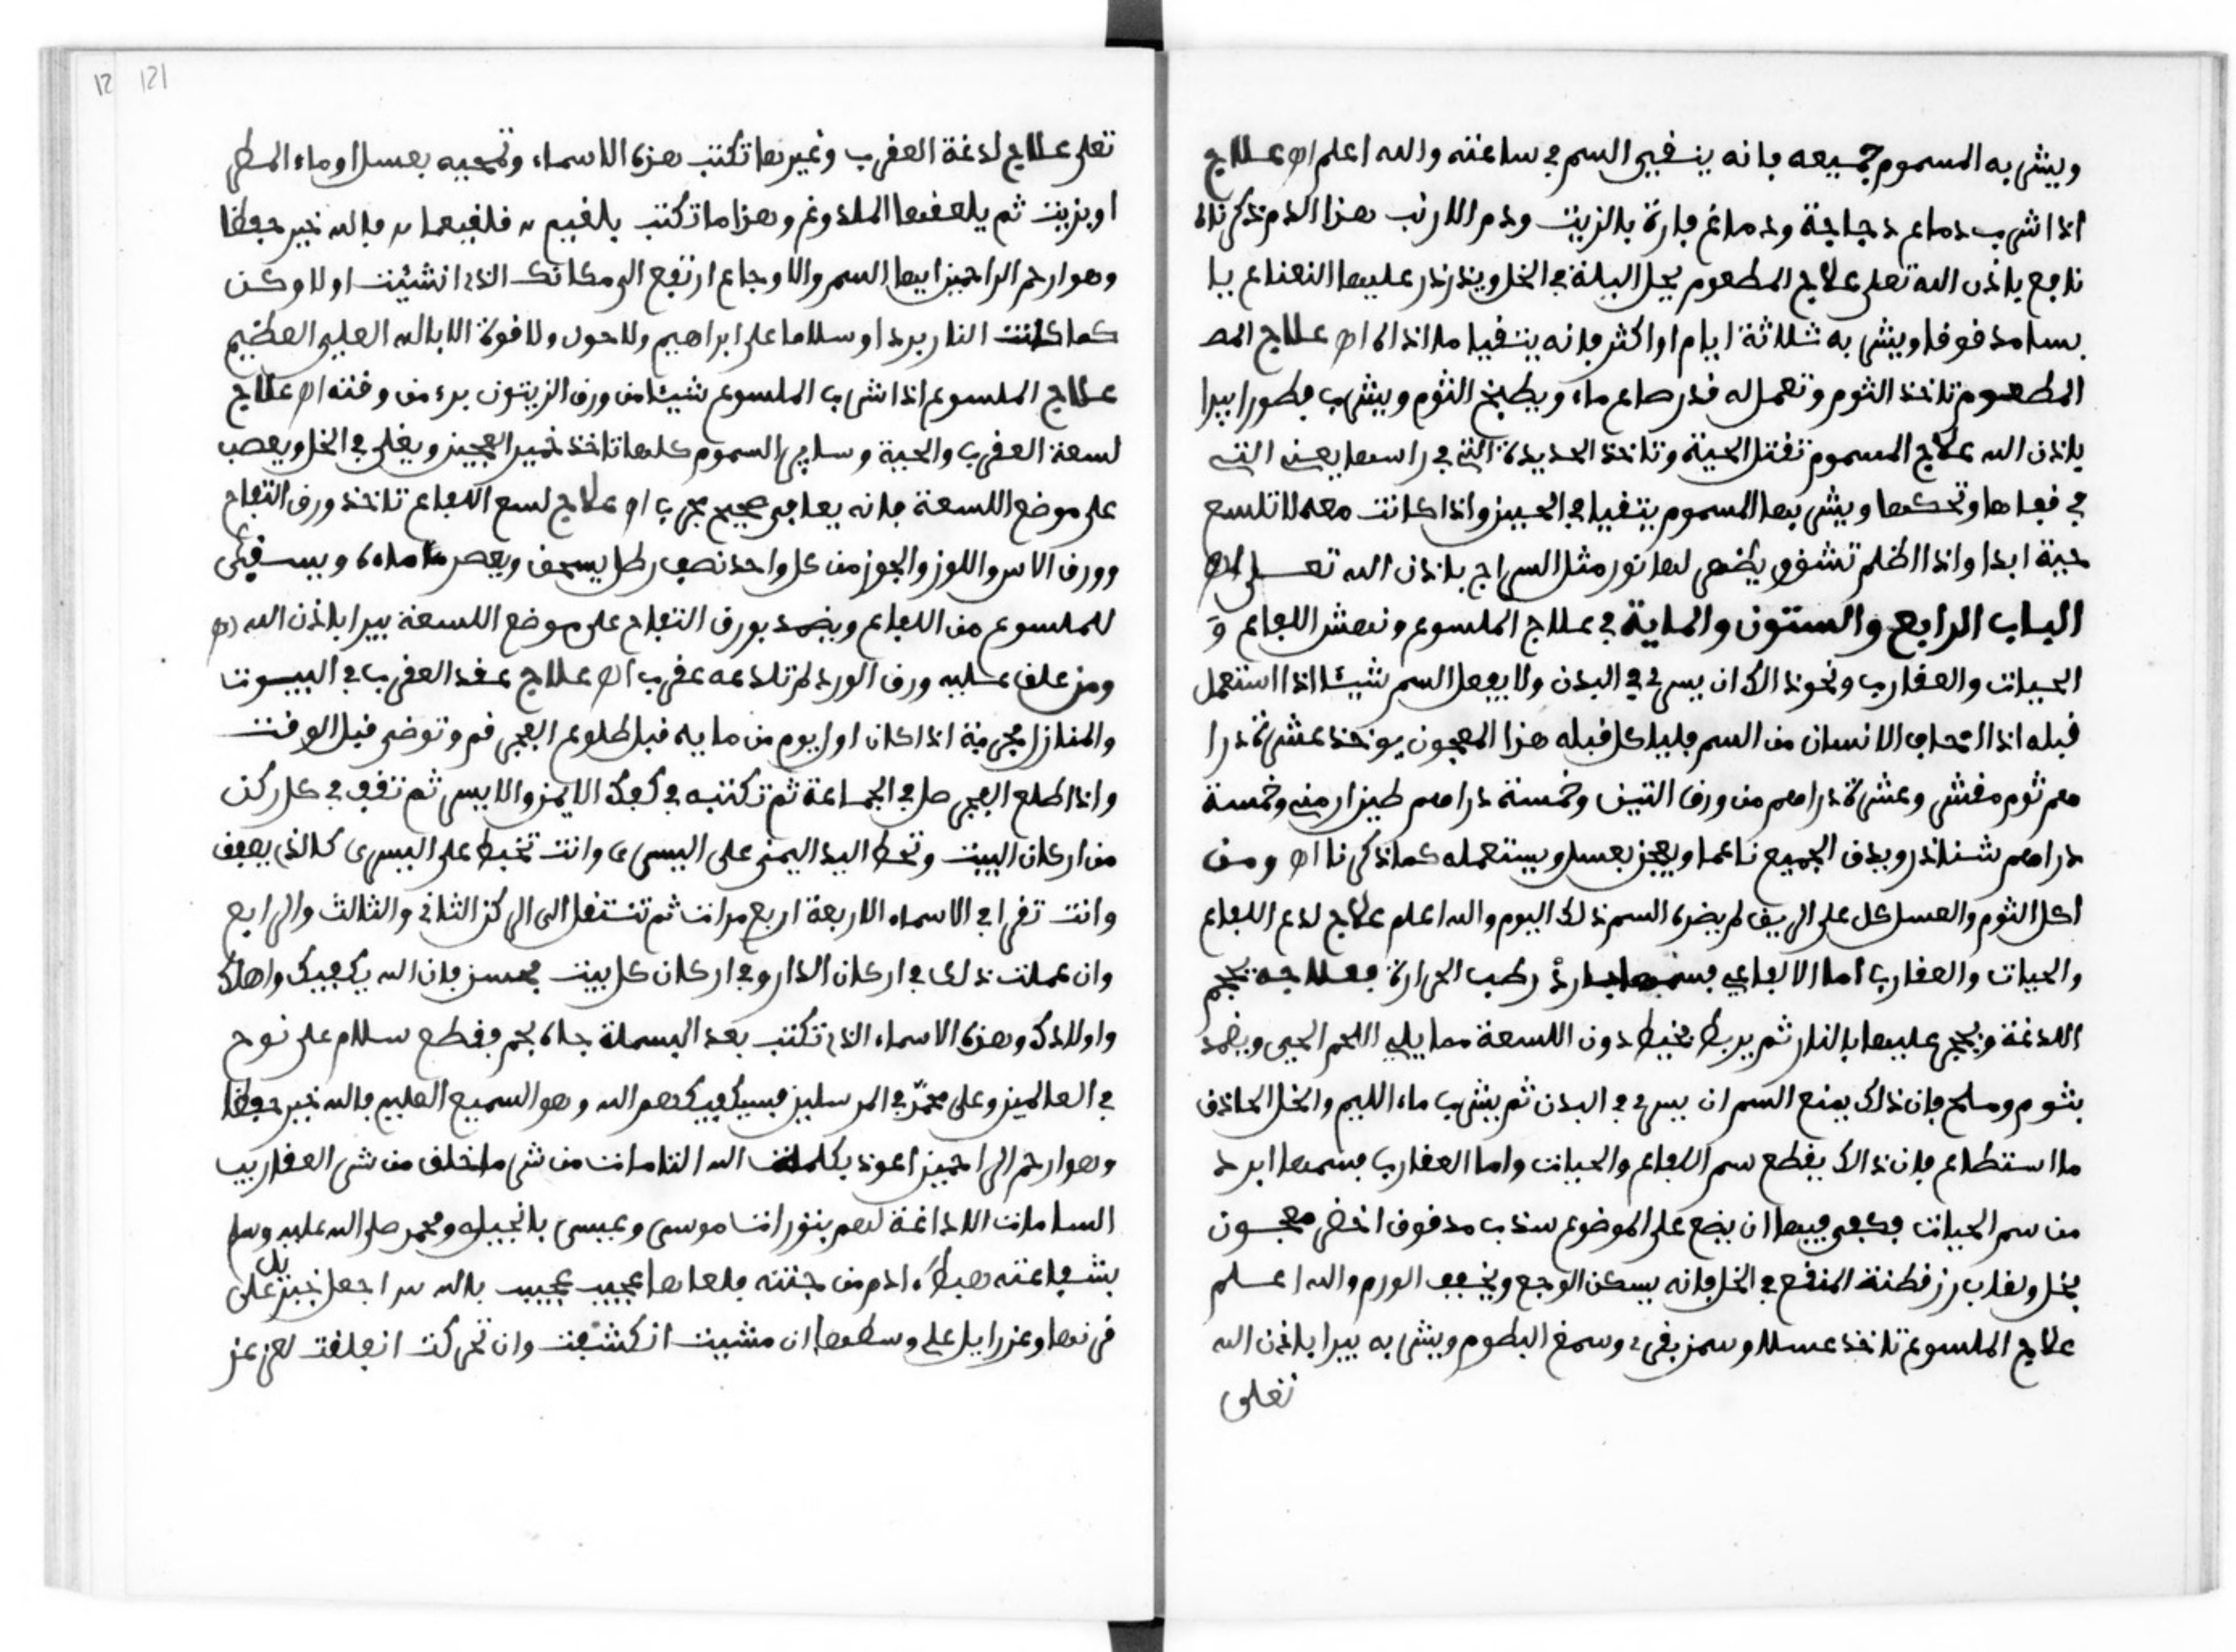 ويشرب به المسموم جميعه فانه يتقيى السم في ساعته والله اعلم اه علاج
اذا شرب دماغ دجاجة ودماغ فارة بالزيت ودم الارنب هذا الدم ذكرناه
نافع باذن الله تعلى علاج المطعوم يحل البيلة في الخل ويذرذر عليها النعناع يا
بسا مدقوقا ويشرب به ثلاثة ايام او اكثر فانه يتقيا ما اذاه اه علاج المط
المطعوم تاخذ الثوم وتعمل له قدر صاع ماء ويطبخ الثوم ويشرب فطورا يبرا
باذن الله علاج المسموم تقتل الحية وتاخذ الحديدة التي في راسها يعني التي
في قفاها وتحكها ويشربها المسموم يتقيا في الحين واذا كانت معه لا تلسعه
حية ابدا واذا اظلم تشوفه يظهر لها نور مثل السراج باذن الله تعلى اه
الباب الرابع والستون والماية في علاج الملسوع ونهش اللفاع و
الحيات والعقارب ونحو ذالك ان يسري في البدن ولا يفعل السم شيئا اذا استعمل
قبله اذا خاف الانسان من السم فلياكل قبله هذا المعجون يوخذ عشرة درا
هم ثوم مقشر وعشرة دراهم من ورق التين وخمسة دراهم طين ارمني وخمسة
دراهم شناذر ويدق الجميع ناعما ويعجن بعسل ويستعمله كما ذكرنا اه ومن
اكل الثوم والعسل كل على الريق لم يضره السم ذلك اليوم والله اعلم علاج لدغ اللفاع
والحيات والعقارب اما الافاعي فسمها بارد رطب الحرارة فعلاجه يحجم
اللدغة ويحجر عليها بالنار ثم يربط بخيط دون اللسعة مما يلي اللحم الحي ويضمد
بثوم وملح فان ذلك يمنع السم ان يسري في البدن ثم يشرب ماء الليم والخل الحاذق
ما استطاع فان ذالك يقطع سم اللفاع والحيات واما العقارب فسمها ابرد
من سم الحيات فيكفي فيها ان يضع على الموضوع سذب مدقوق اخضر معجون
بخل ولعاب زر قطنة المنقع في الخل فانه يسكن الوجع ويخفف الورم والله اعلم
علاج الملسوع تاخذ عسلا وسمن بقري وسمغ البطوم ويشربه يبرا باذن الله
تعلى
تعلى علاج لدغة العقرب وغيرها تكتب هذه الاسماء وتمحيه بعسل او ماء المطر
او بزيت ثم يلعقها الملدوغ وهذا ما تكتب بلقيم فلقيهما فالله خير حفظا
وهو ارحم الراحمين ايها السم والاوجاع ارتفع الى مكانك الذي انشيت اولا وكن
كما كانت النار بردا وسلاما على ابراهيم ولا حول ولا قوة الا بالله العلي العظيم
علاج الملسوع اذا شرب الملسوع شيئا من ورق الزيتون برء من وقته اه علاج
لسعة العقرب والحية وساير السموم كلها تاخذ خمير العجين ويغلي في الخل ويعصب
على موضع اللسعة فانه يعافى صحيح مجرب اه علاج لسع اللفاع تاخذ ورق التفاح
وورق الاس واللوز والجوز من كل واحد نصف رطل يسحق ويعصر ماءه ويسقى
للملسوع من اللفاع ويضمد بورق التفاح على موضع اللسعة يبرا باذن الله اه
ومن علق عليه ورق الورد لم تلدغه عقرب اه علاج عقد العقرب في البيوت
والمنازل مجربة اذا كان اول يوم من مايه قبل طلوع الفجر قم وتوضى قبل الوقت
واذا طلع الفجر صل في الجماعة ثم تكتبه في كفك الايمن والايسر ثم تقف في كل ركن
من اركان البيت وتحط اليد اليمنى على اليسرى وانت تخبط على اليسرى كالذي يصفق
وانت تقرا في الاسماء الاربعة اربع مرات ثم تنتقل الى الركن الثاني والثالث والرابع
وان عملت ذلك في اركان الدار وفي اركان كل بيت فحسن فان الله يكفيك واهلك
واولادك وهذه الاسماء الذي تكتب بعد البسملة جاه بجم فقطع سلام على نوح
في العالمين وعلى محمد في المرسلين فسيكفيكهم الله وهو السميع العليم فالله خير حفظا
وهو ارحم الراحمين اعوذ بكلمات الله التامات من شر ما خلق من شر العقاريب
السامات اللداغة لهم بتورات موسى وعيسى بانجيله ومحمد صلى الله عليه وسلم
بشفاعته هبط ادم من جنته فلعاها عجيب عجيب بالله اجعل جبريل على
قرنها وعزرايل على وسطها ان مشيت انكشفت وان تحركت انفلقت لعن عز